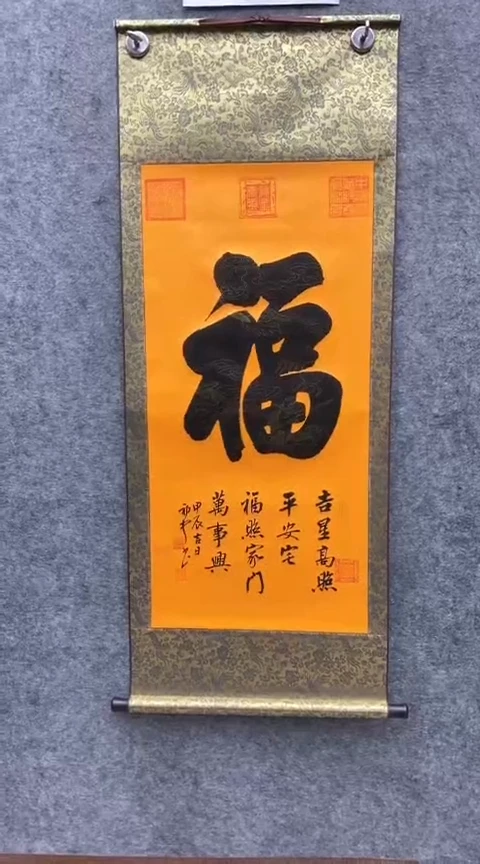 福
吉星高照
平安宅
福照家门
萬事興
甲辰吉日